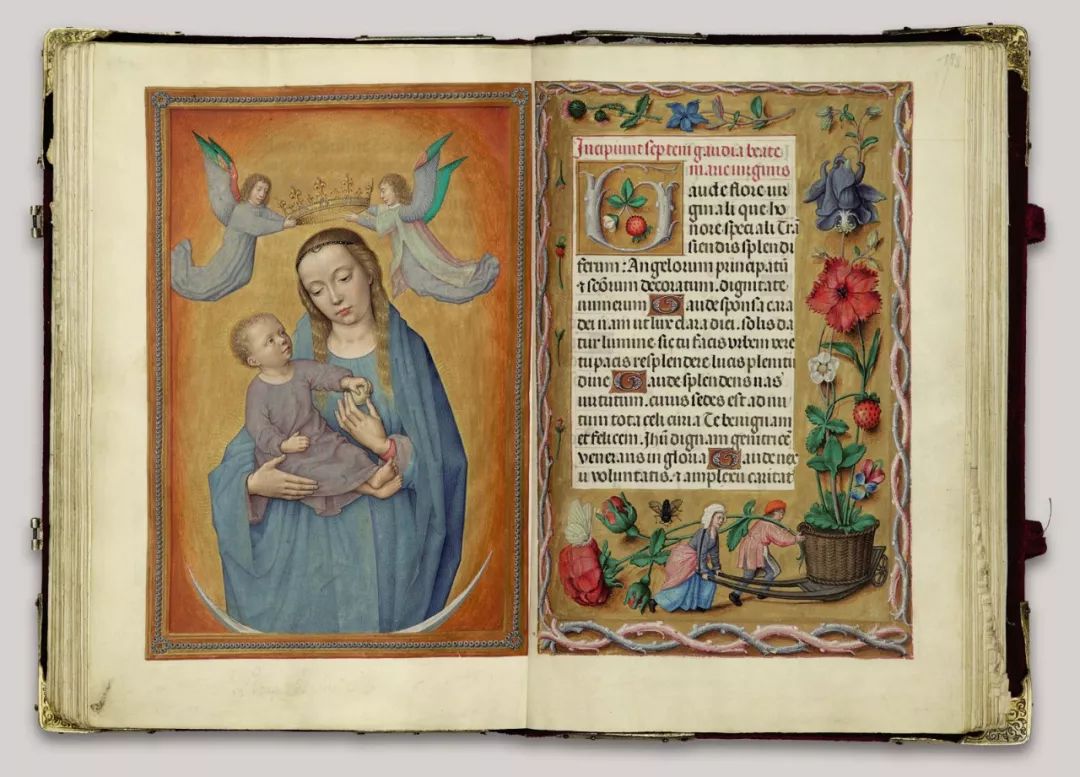 Incipiunt septem gaudia beate
marie virginis
Gaude flore vir
ginali que ho
nore speciali Trā
scendis splendi
ferum : Angelorum principatū
⁊ scōrum decoratum . dignitate
numerum Gaude sponsa cara
dei nam ut lux clara diei . solis da
tur lumine . sic tu facis orbem vere
tu pacis resplendere lucis plenitu
dine Gaude splendens vas
virtutum . cuius sedes est ad nu
tum tota celi curia Te benignam
et felicem . Jhū dignam genitricē
venerans in gloria Gaude nex
u voluntatis . ⁊ amplexu caritat